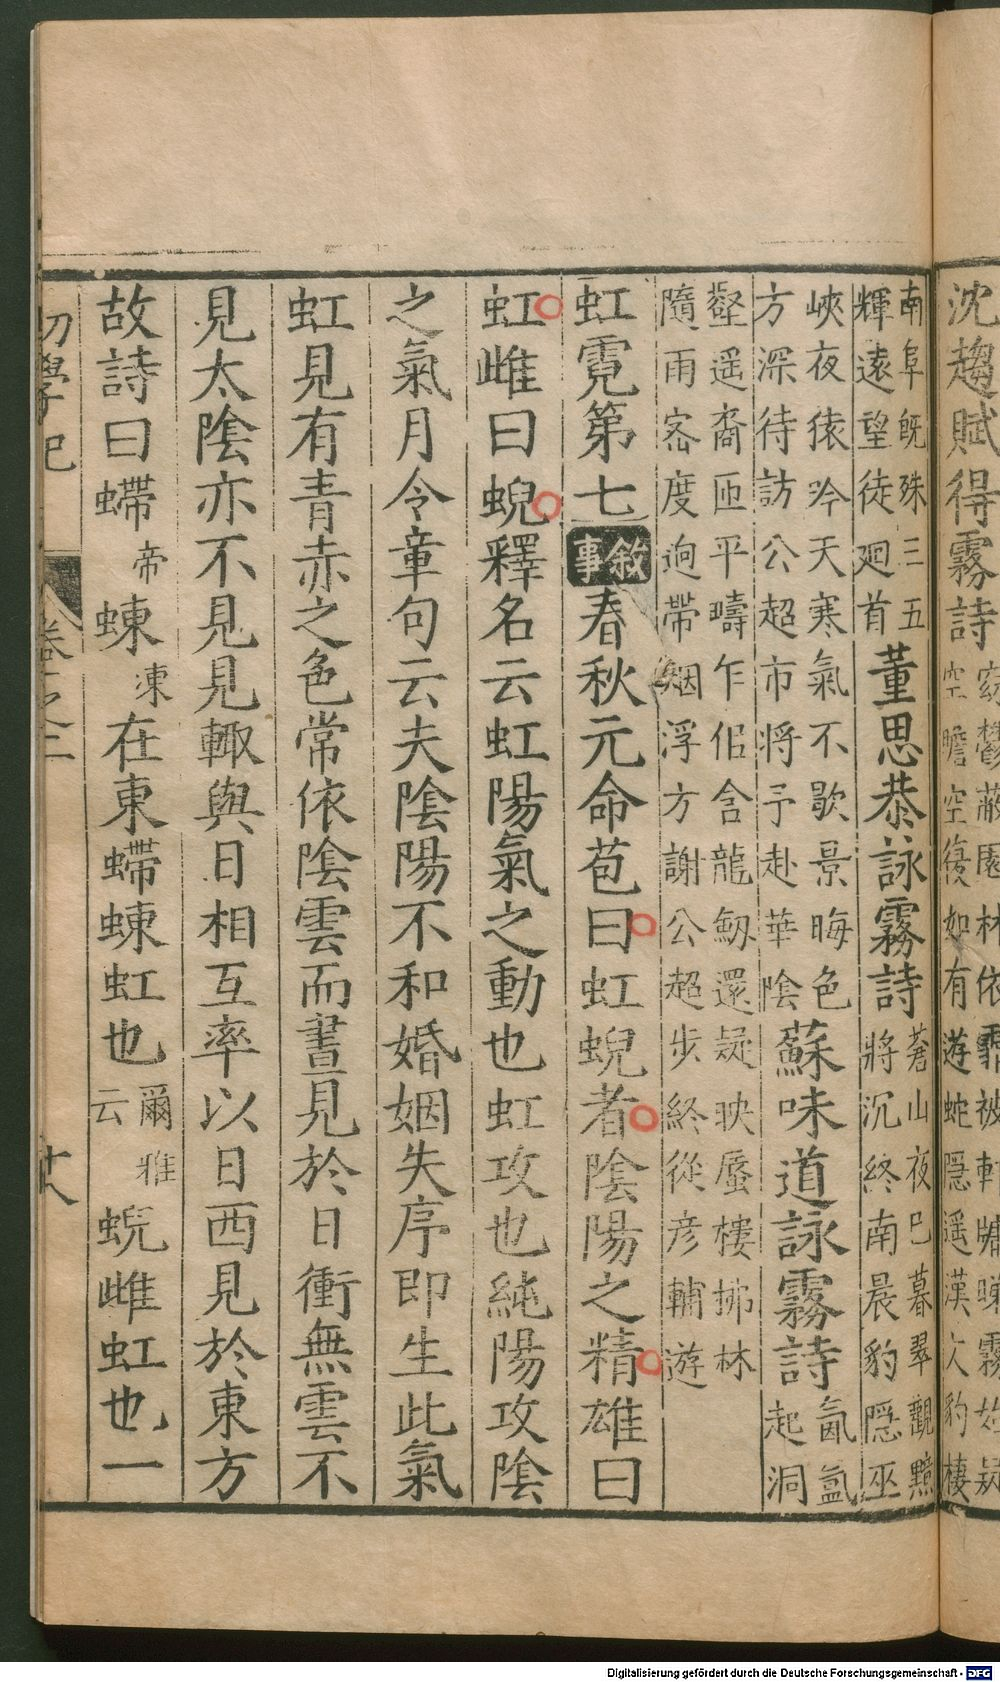 沈趨賦得霧詩
窈鬱蔽園林依霏被軒牖睇霧始疑
空瞻空復如有遊蛇隱遥漢文豹棲
南阜旣殊三五
輝遠望徒迴首
董思恭詠霧詩
蒼山夜巳暮翠觀黯
將沉終南晨豹隱巫
峽夜猿吟天寒氣不歇景晦色
方深待訪公超市將予赴華陰
蘇味道詠霧詩
氤氳
起洞
壑遥裔匝平疇乍佀含龍劒還疑映蜃樓拂林
隨雨宻度逈帶烟浮方謝公超步終從彦輔遊
虹霓第七
敘事
春秋元命苞曰虹蜺者陰陽之精雄曰
虹雌曰蜺釋名云虹陽氣之動也虹攻也純陽攻陰
之氣月令章句云夫陰陽不和婚姻失序即生此氣
虹見有青赤之色常依陰雲而晝見於日衝無雲不
見太陰亦不見見輙與日相互率以日西見於東方
故詩曰螮帝蝀凍在東螮蝀虹也爾雅云蜺雌虹也一
初學記
卷之二
廿八
Digitalisierung gefördert durch die Deutsche Forschungsgemeinschaft - DFG